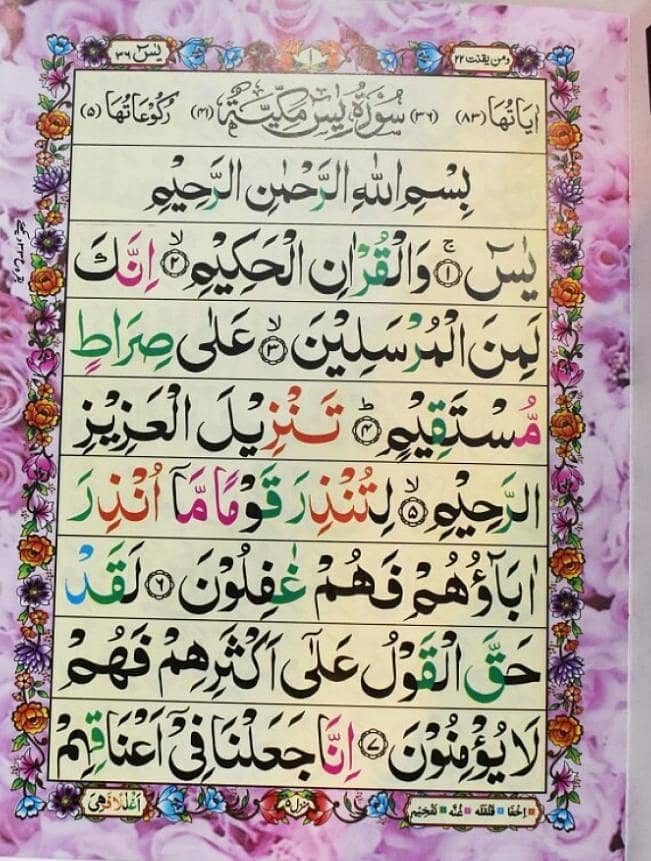 یٰسٓ ٣٦ ١ ومن یقنت ٢٢
اٰیاتُهَا (٨٣) (٣٦) سُوْرَةُ یٰسٓ مَكِّیَّةٌ (٤١) رُكُوْعَاتُهَا (٥)
بِسْمِ اللّٰهِ الرَّحْمٰنِ الرَّحِیْمِ
یٰسٓ ۚ﴿١﴾ وَالْقُرْاٰنِ الْحَكِیْمِ ۙ﴿٢﴾ اِنَّكَ
لَمِنَ الْمُرْسَلِیْنَ ۙ﴿٣﴾ عَلٰی صِرَاطٍ
مُّسْتَقِیْمٍ ؕ﴿٤﴾ تَنْزِیْلَ الْعَزِیْزِ
الرَّحِیْمِ ۙ﴿٥﴾ لِتُنْذِرَ قَوْمًا مَّاۤ اُنْذِرَ
اٰبَآؤُهُمْ فَهُمْ غٰفِلُوْنَ ﴿٦﴾ لَقَدْ
حَقَّ الْقَوْلُ عَلٰۤی اَكْثَرِهِمْ فَهُمْ
لَا یُؤْمِنُوْنَ ﴿٧﴾ اِنَّا جَعَلْنَا فِیْۤ اَعْنَاقِهِمْ
اِخفا قلقله غُنّه تفخیم منزل ٥ اَغْلٰلًا فَهِیَ